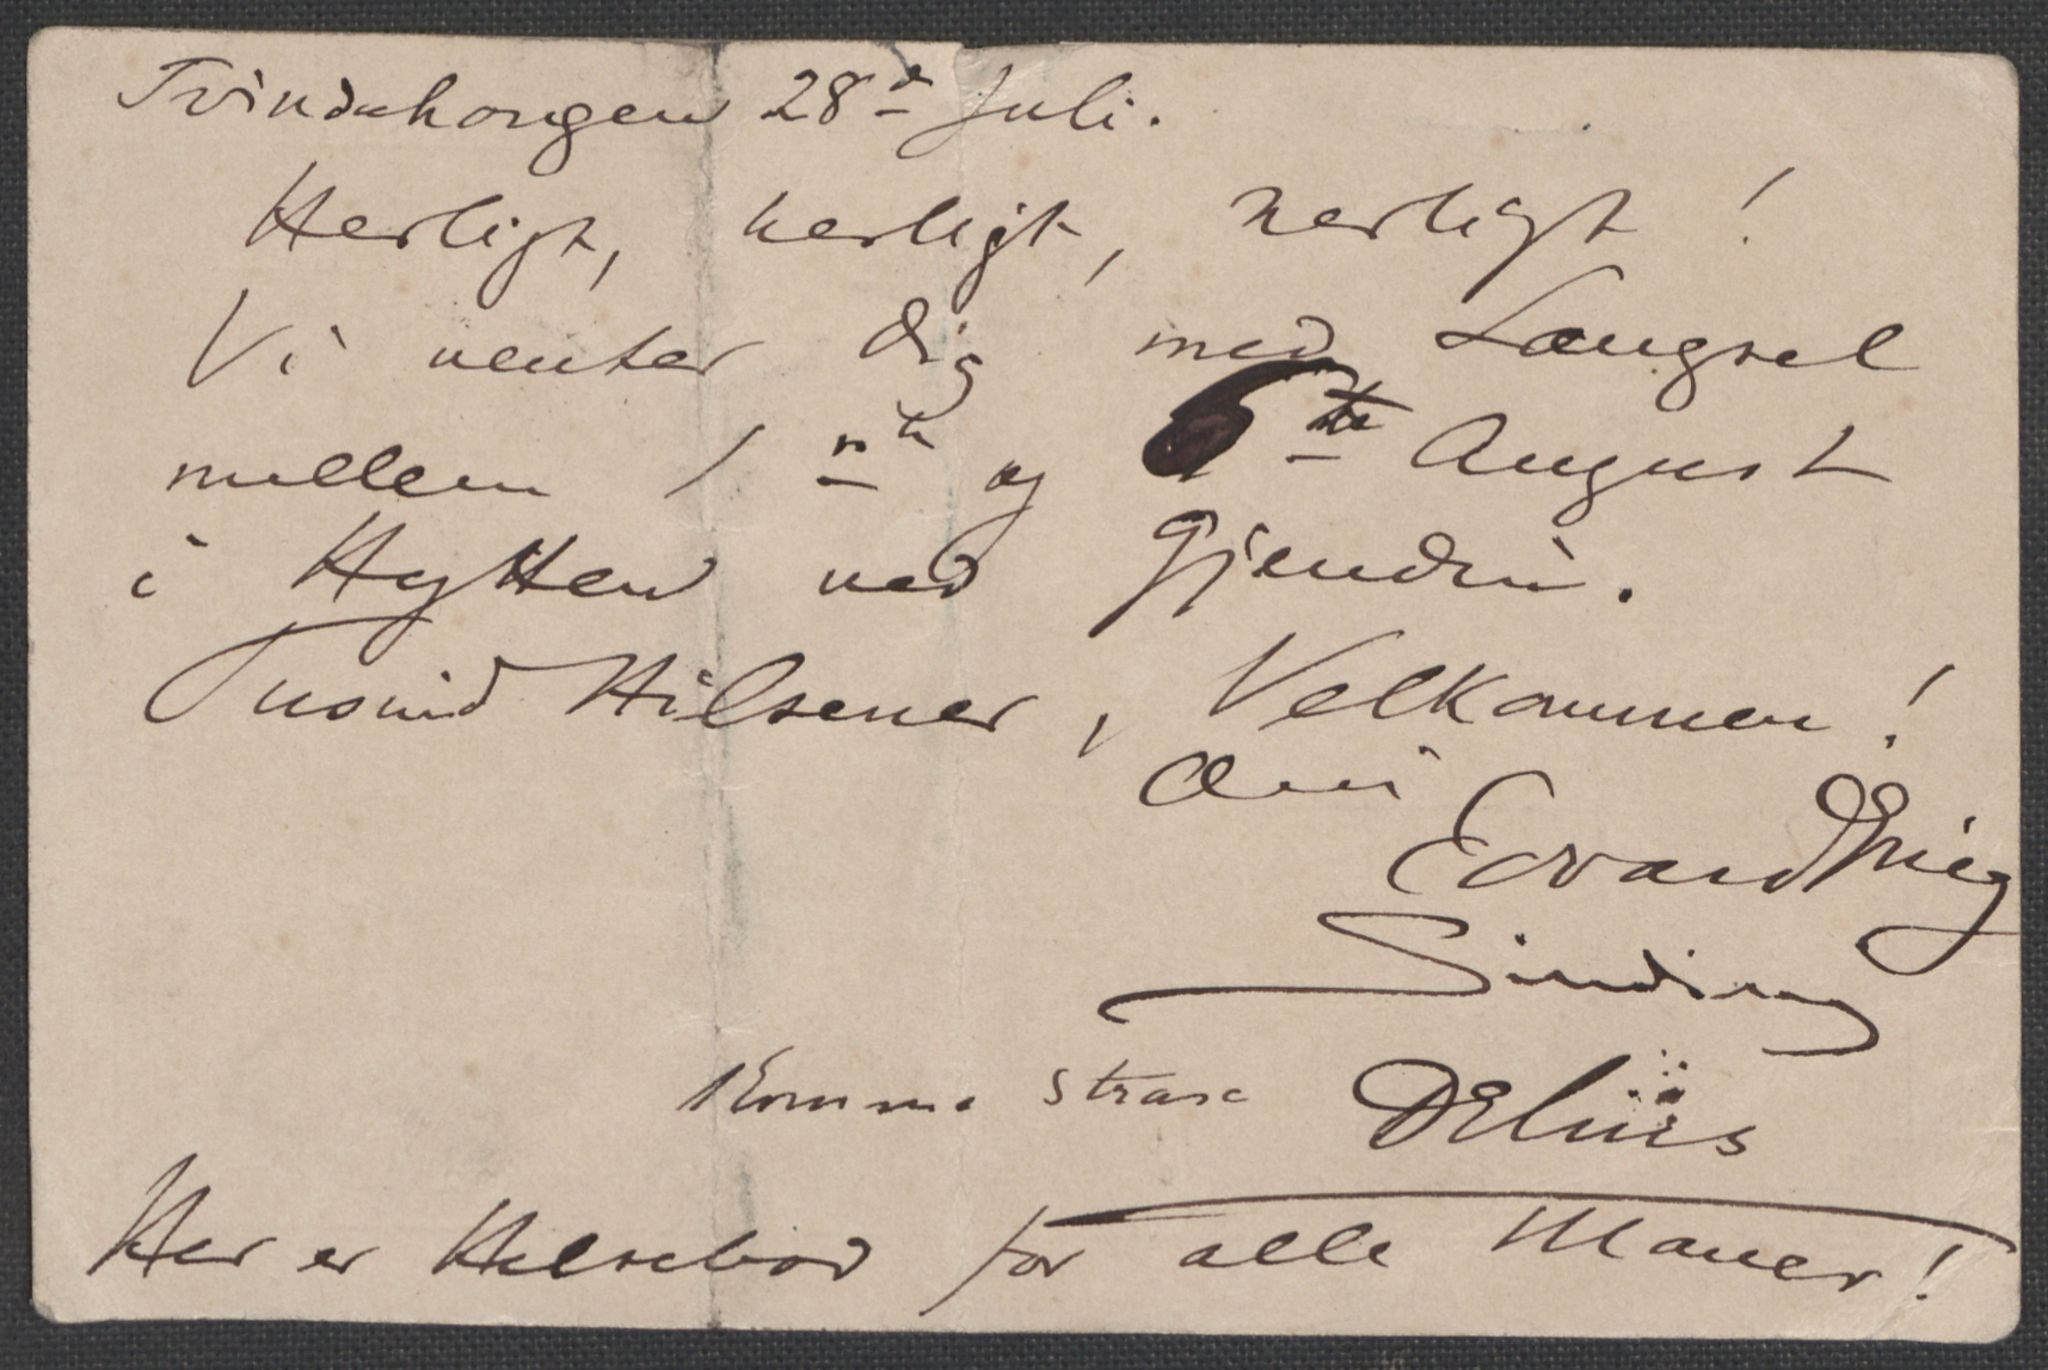 Tvindehougen 28de Juli.
Herligt, herligt, herligt!
Vi venter dig med Længsel
mellem 1ste og 6te August
i Hytten ved Gjendin.
Tusind Hilsener, Velkommen!
Edvard Grieg
Sinding
Komme strax Delius
Her er Helsebod for alle Maver!